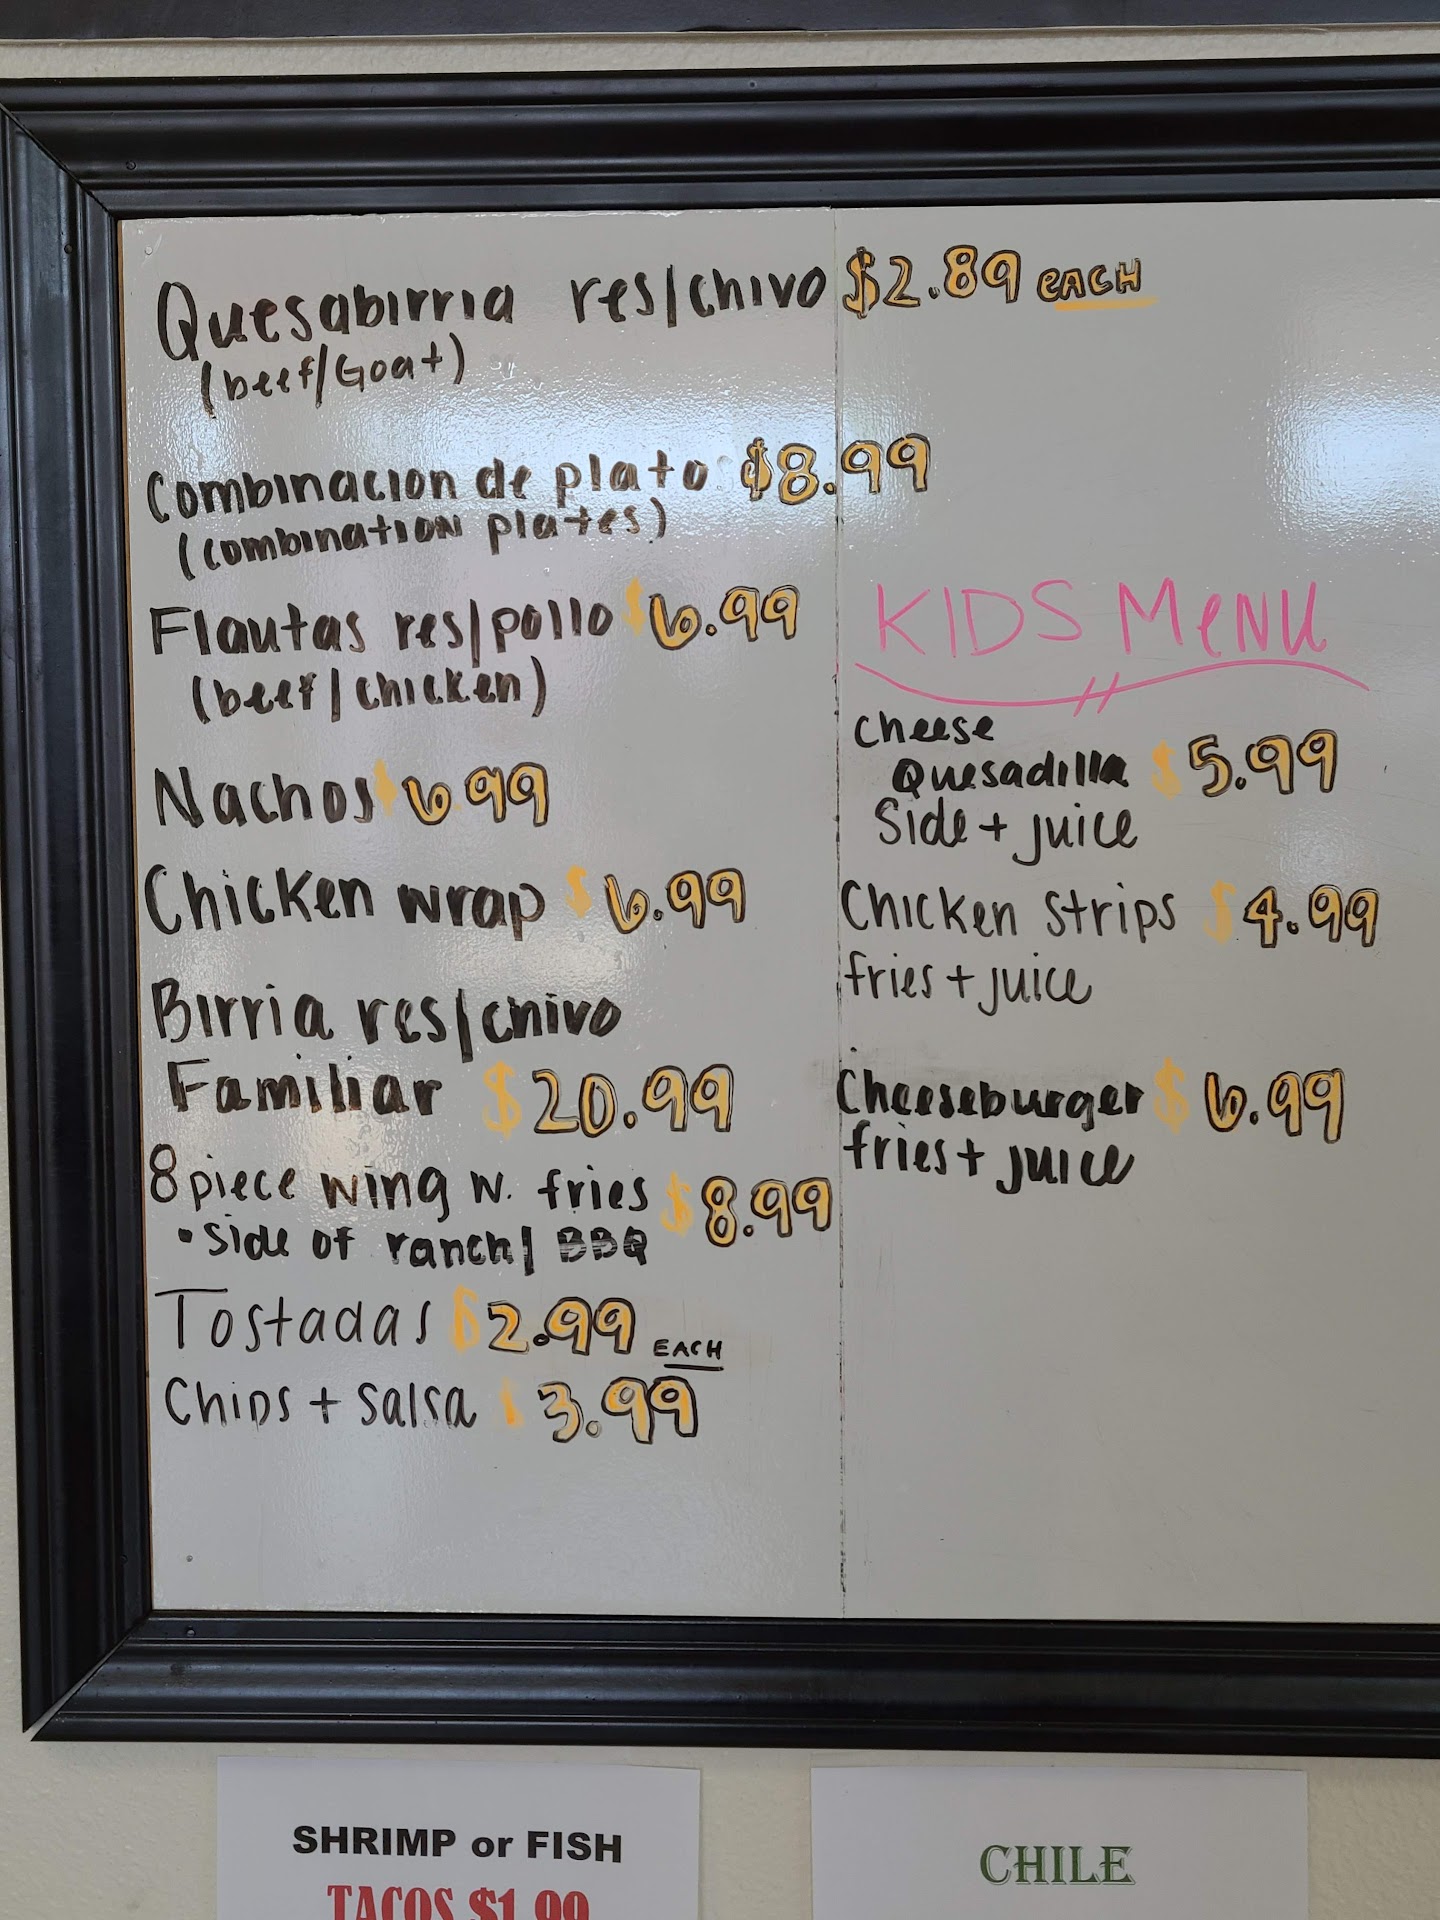 Quesabirria res/chivo $2.89 each
(beef/Goat)
Combinacion de plato $8.99
(combination plates)
Flautas res/pollo $6.99
(beef/chicken)
Nachos $6.99
Chicken wrap $6.99
Birria res/chivo
Familiar $20.99
8 piece wing w. fries $8.99
• side of ranch/ BBQ
Tostadas $2.99 EACH
Chips + salsa $3.99
KIDS MeNU
Cheese
Quesadilla $5.99
Side + juice
Chicken strips $4.99
fries + juice
Cheeseburger $6.99
fries + juice
SHRIMP or FISH
TACOS $1.99
CHILE